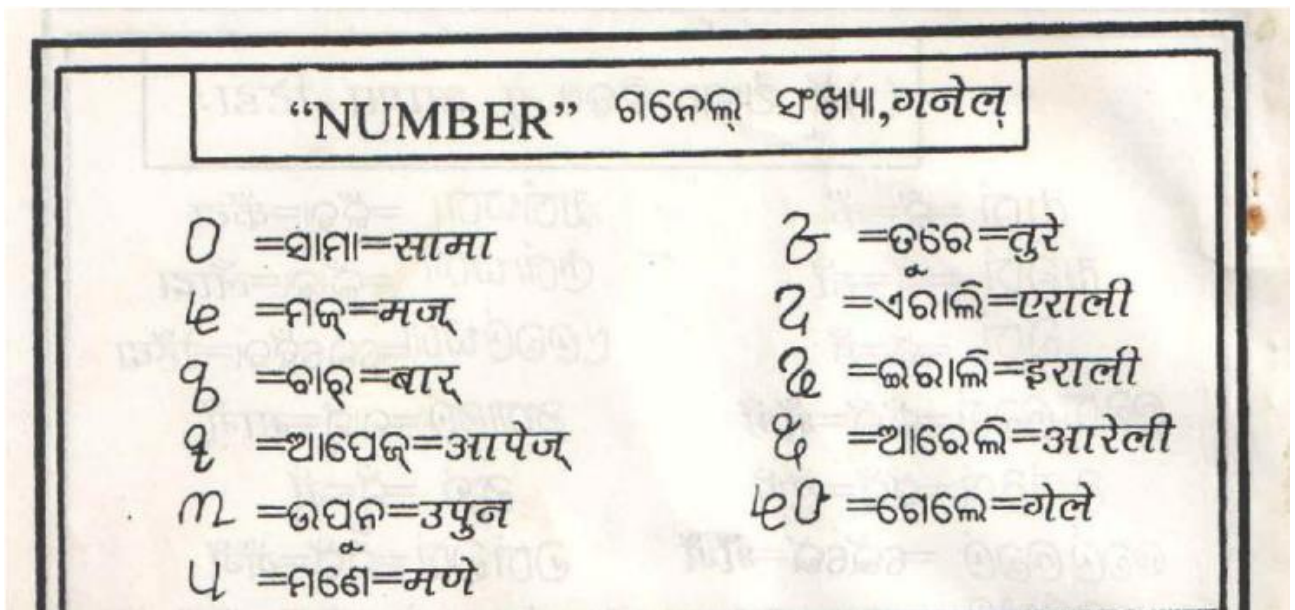 “NUMBER” ଗନେଲ୍ ସଂଖ୍ୟା,गनेल्
=ସାମା=सामा
=ମଜ୍=मज्
=ବାର୍=बार्
=ଆପେଜ୍=आपेज्
=ଉପୁନ=उपुन
=ମଣେ=मणे
=ତୁରେ=तुरे
=ଏରାଲି=एराली
=ଇରାଲି=इराली
=ଆରେଲି=आरेली
=ଗେଲେ=गेले